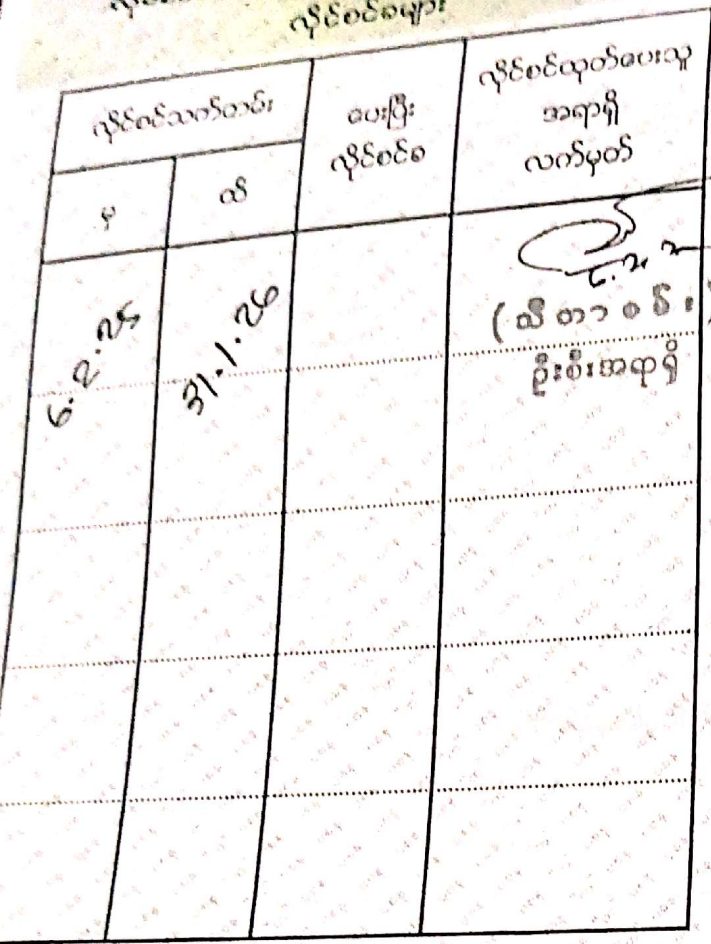 လိုင်စင်များ
လိုင်စင်သက်တမ်း
ပေးပြီး
လိုင်စင်စ
လိုင်စင်ထုတ်ပေးသူ
အရာရှိ
လက်မှတ်
မှ
ထိ
6.2.25
31.1.26
ဦးစီးအရာရှိ